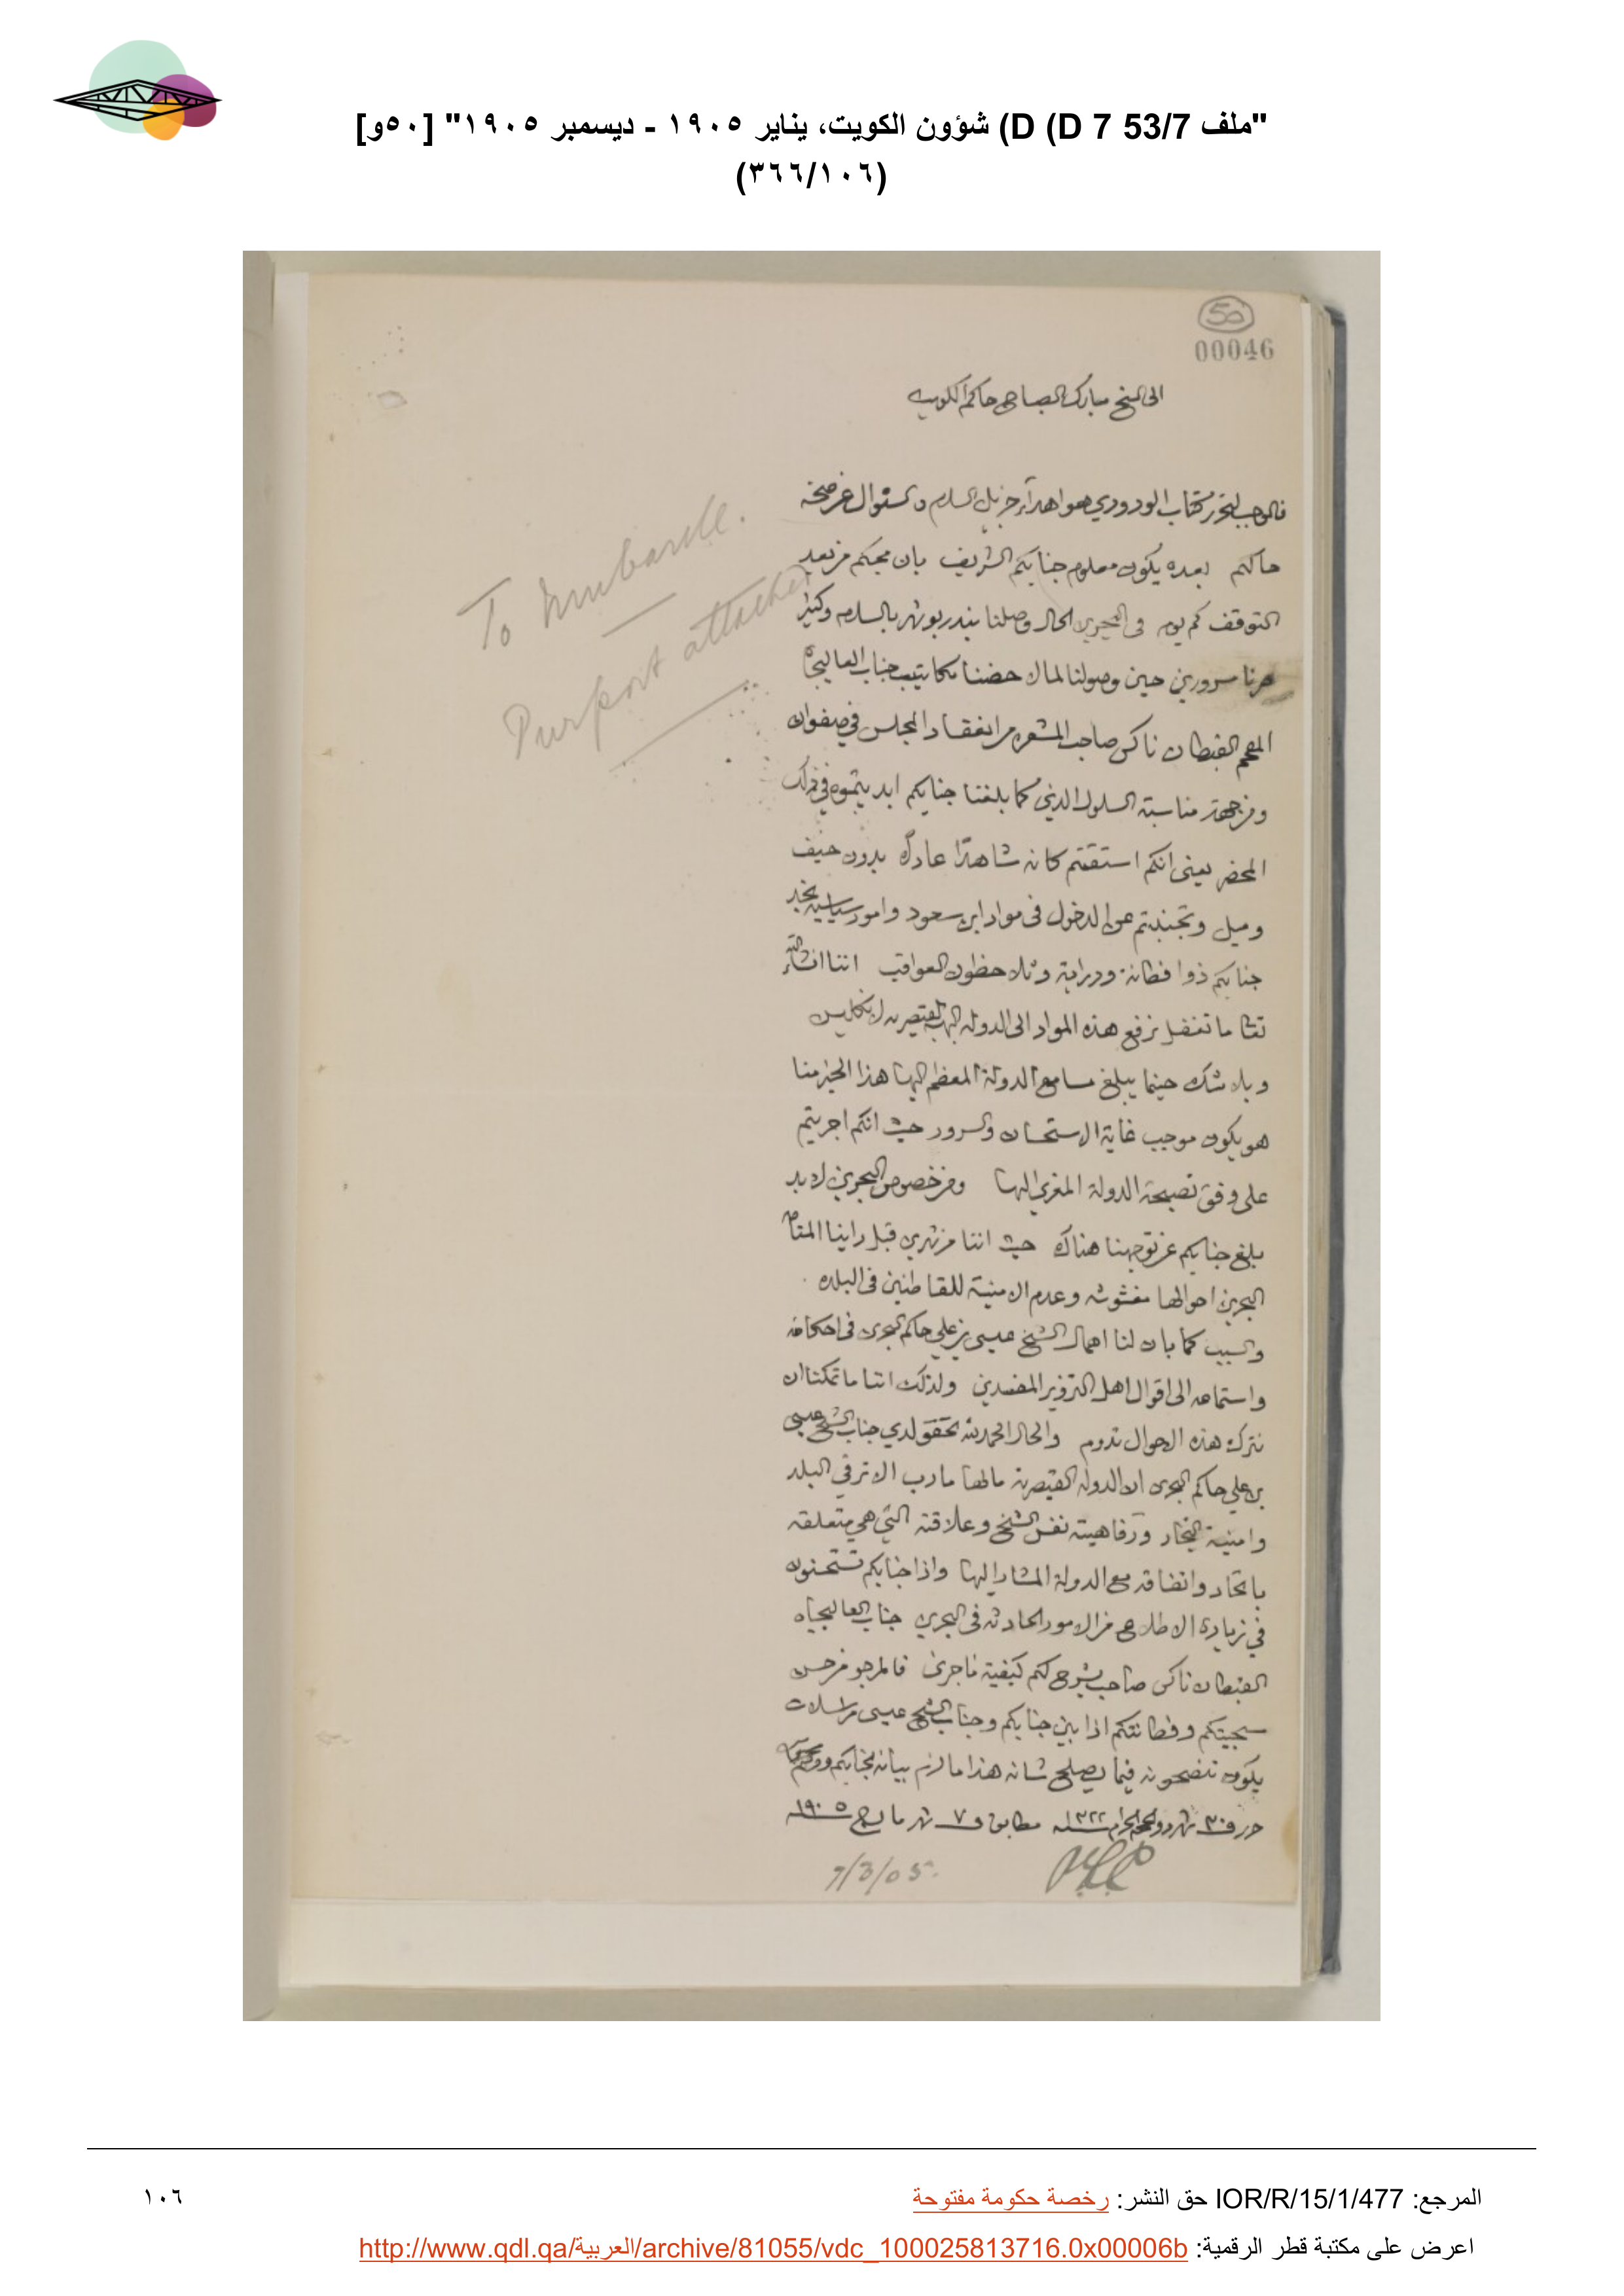 "ملف 53/7 D (D 7) شؤون الكويت، يناير ١٩٠٥ - ديسمبر ١٩٠٥" [٥٠و]
(٣٦٦/١٠٦)
50
00046
الى الشيخ مبارك الصباح حاكم الكويت
To Mubarak.
Purport attached
فالموجب لتحرير كتاب الودودي هو اهداء جزيل السلام والسئوال عن صحة
حالكم بعده يكون معلوم جنابكم الشريف بان محبكم من بعد
التوقف كم يوم في البحرين الحال وصلنا بندر بوشهر بالسلامه وكثير
صرنا مسرورين حين وصولنا لمالاحضنا مكاتيب جناب العاليجاه
المفخم القبطان ناكس صاحب المشعره من انعقاد المجلس في صفوان
ومن جهة مناسبة السلوك الذي كما بلغنا جنابكم ابديتموه في ذلك
المحضر يعني انكم استقمتم كانه شاهدًا عادلاً بدون حيف
وميل وتجنبتم عن الدخول في مواد ابن سعود وامور سياسية نجد
جنابكم ذوا فطانة ودراية وتلاحظون العواقب اننا انشاء الله
تعا ما نغفل نرفع هذه المواد الى الدولة البهية القيصرية الانكليس
وبلا شك حينما يبلغ مسامع الدولة المعظم اليها هذا الخبر منا
هو يكون موجب غاية الاستحسان والسرور حيث انكم اجريتم
على وفق نصيحة الدولة المعزى اليها ومن خصوص البحرين لابد
بلغ جنابكم عن توجهنا هناك حيث اننا من شهرين قبل راينا المقام
البحرين احوالها مغشوشه وعدم الامنية للقاطنين في البلده
والسبب كما بان لنا اهمال الشيخ عيسى بن علي حاكم البحرين في احكامه
واستماعه الى اقوال اهل التزوير المفسدين ولذلك اننا ما تمكنا ان
نترك هذه الاحوال تدوم والحال الحمد لله تحقق لدى جناب الشيخ عيسى
بن علي حاكم البحرين ان الدولة القيصرية مالها مارب الا ترقي البلد
وامنية التجار ورفاهية نفس الشيخ وعلاقته التي هي متعلقه
باتحاد واتفاقه مع الدولة المشار اليها واذا جنابكم تستحسنون
في زيادة الاطلاع من الامور الحادثه في البحرين جناب العاليجاه
القبطان ناكس صاحب يشرح لكم كيفية ماجرى فالمرجو من حسن
سجيتكم وفطانتكم اذا بين جنابكم وجناب الشيخ عيسى مراسلات
يكون تنصحونه فيما يصلح شانه هذا ما لزم بيانه لجنابكم ودمتم
حرر في ٣٠ شهر ذو الحجة الحرام سنة ١٣٢٢ مطابق ٧ شهر مارچ سنة ١٩٠٥
7/3/05.
المرجع: IOR/R/15/1/477 حق النشر: رخصة حكومة مفتوحة
١٠٦
اعرض على مكتبة قطر الرقمية: http://www.qdl.qa/العربية/archive/81055/vdc_100025813716.0x00006b